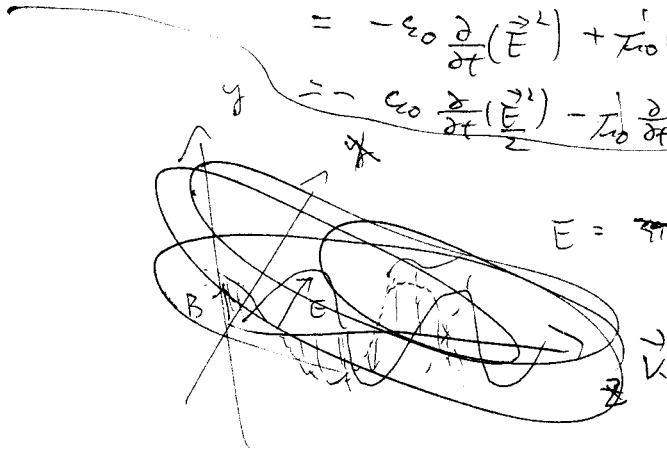 = -ε₀ ∂/∂t(E⃗²) + 1/μ₀
= - ε₀ ∂/∂t(E⃗²/2) - 1/μ₀ ∂/∂t
y
E =
B
E
z